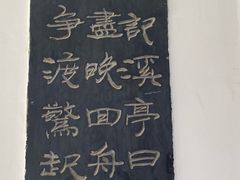 記溪亭日
盡晚回舟
争渡驚起